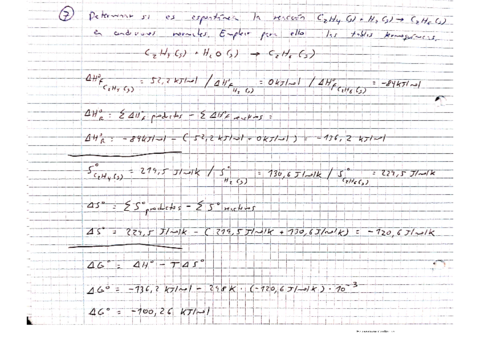 7) Determinar si es espontánea la reacción C₂H₄(g) + H₂(g) → C₂H₆(g)
en condiciones normales. Emplear por ello las tablas termoquímicas.
C₂H₄(g) + H₂O(g) → C₂H₆(g)
ΔH°f C₂H₄(g) = 52,2 kJ/mol / ΔH°f H₂(g) = 0 kJ/mol / ΔH°f C₂H₆(g) = -84 kJ/mol
ΔH°R = ΣΔH° productos - ΣΔH° reactivos =
ΔH°R = -84 kJ/mol - (52,2 kJ/mol + 0 kJ/mol) = -136,2 kJ/mol
S° C₂H₄(g) = 219,5 J/molK / S° H₂(g) = 130,6 J/molK / S° C₂H₆(g) = 229,5 J/molK
ΔS° = ΣS° productos - ΣS° reactivos
ΔS° = 229,5 J/molK - (219,5 J/molK + 130,6 J/molK) = -120,6 J/molK
ΔG° = ΔH° - TΔS°
ΔG° = -136,2 kJ/mol - 298 K · (-120,6 J/molK) · 10⁻³
ΔG° = -100,26 kJ/mol